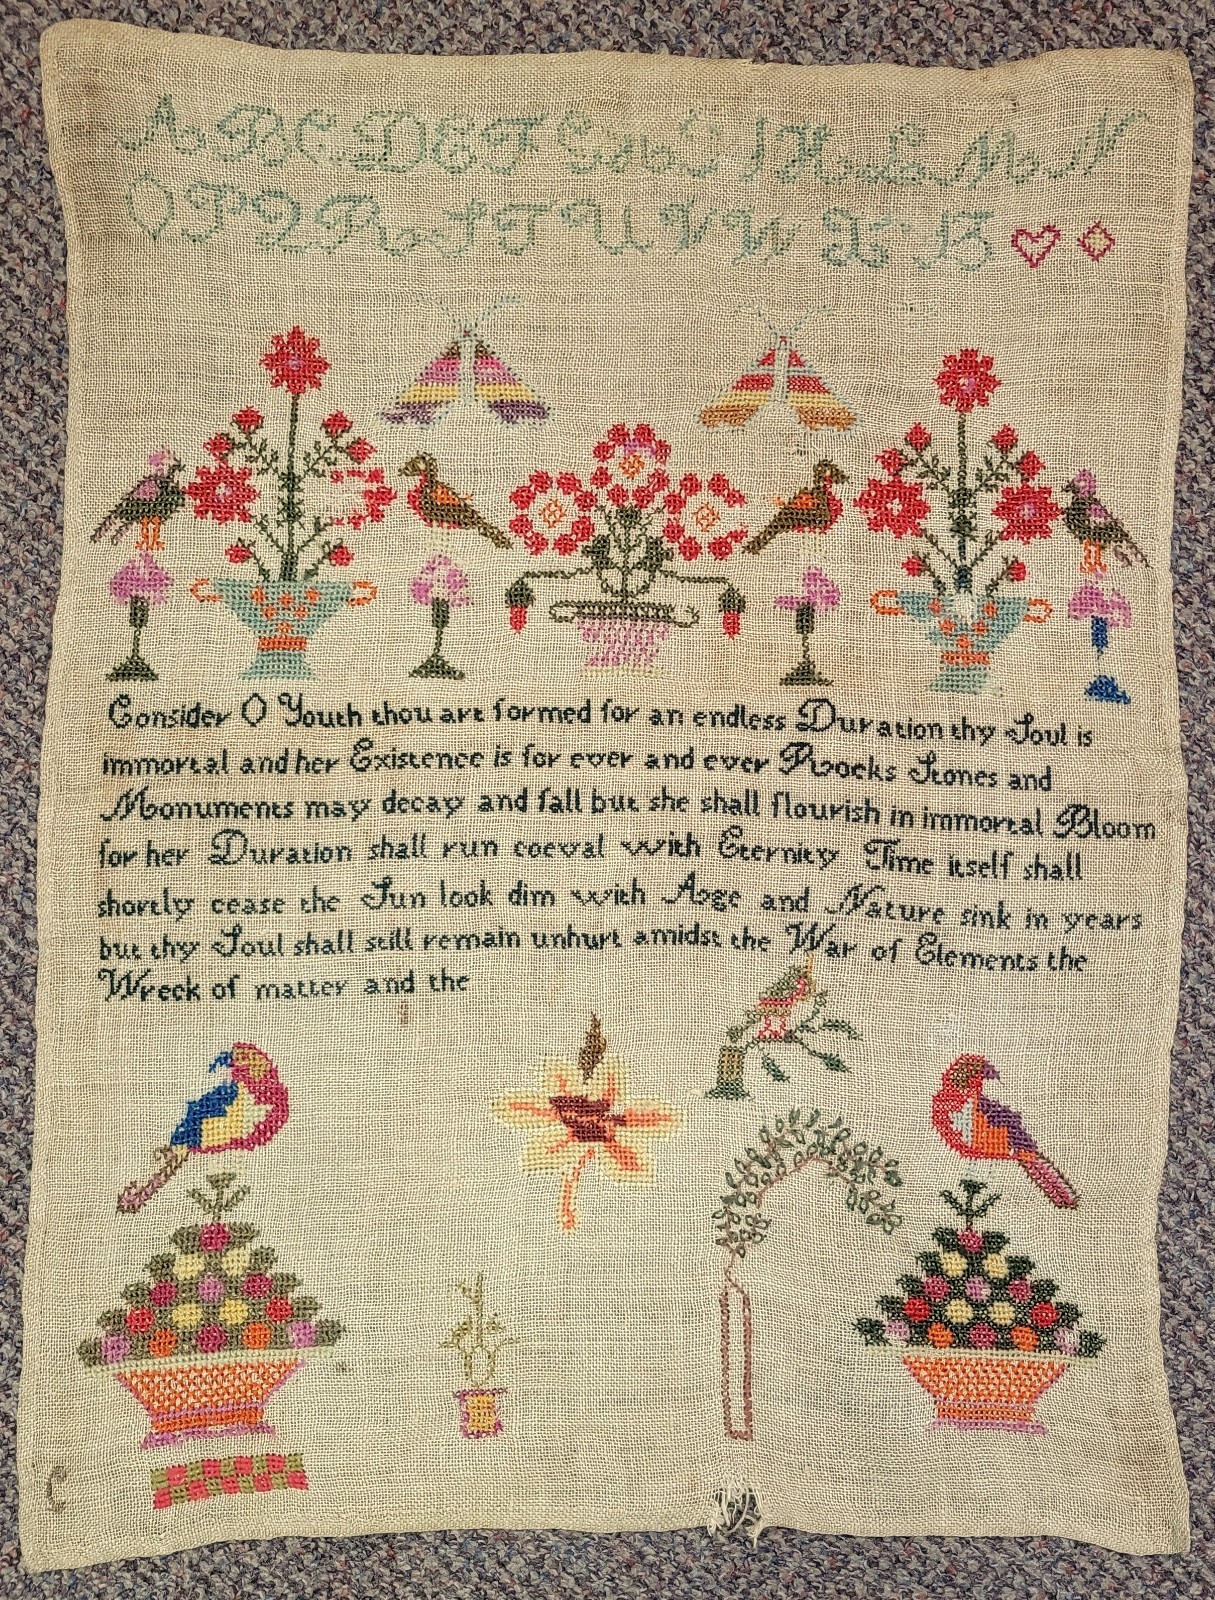 A B C D E F G H I J K L M N
O P Q R S T U V W X B
Consider O Youth thou art formed for an endless Duration thy Soul is
immortal and her Existence is for ever and ever Rocks Stones and
Monuments may decay and fall but she shall flourish in immortal Bloom
for her Duration shall run coeval with Eternity Time itself shall
shortly cease the Sun look dim with Age and Nature sink in years
but thy Soul shall still remain unhurt amidst the War of Elements the
Wreck of matter and the
C